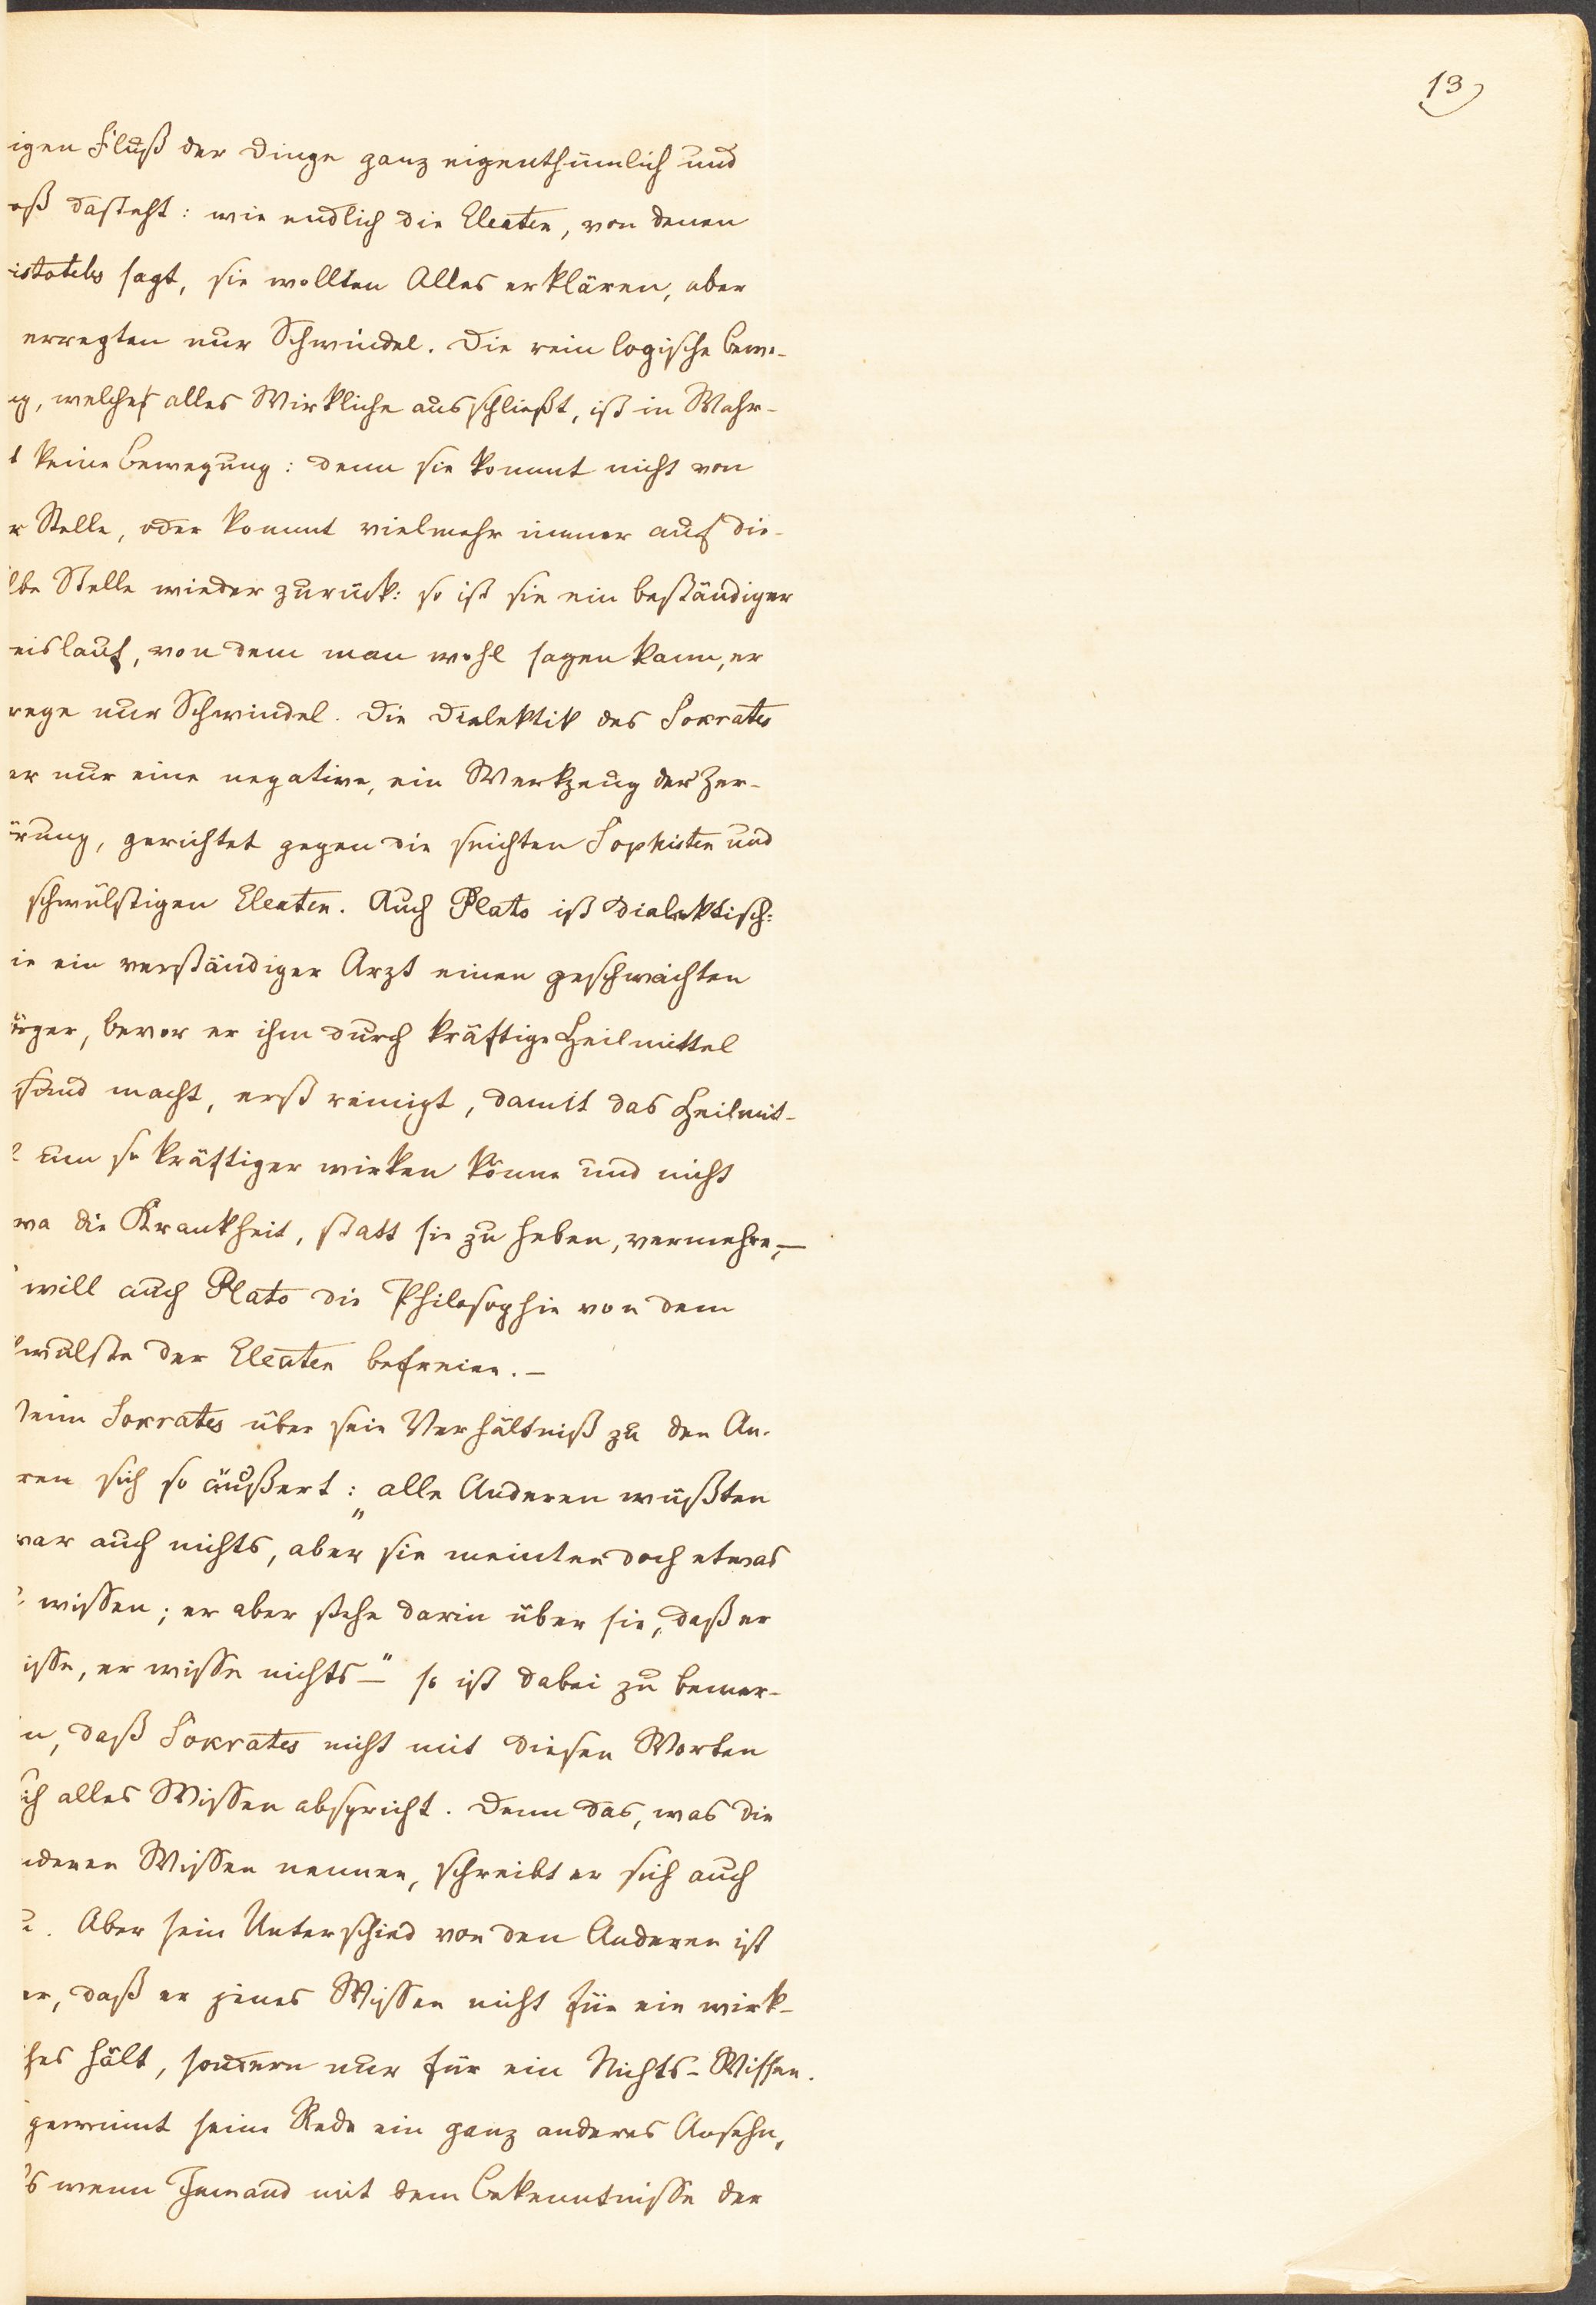 13
igen Fluß der Dinge ganz eigenthümlich und
oß dasteht: wie endlich die Eleaten, von denen
istoteles sagt, sie wollten Alles erklären, aber
erregten nur Schwindel. Die rein logische Bewe-
ng, welche alles Wirkliche ausschließt, ist in Wahr-
t keine Bewegung: denn sie kommt nicht von
r Stelle, oder kommt vielmehr immer auf die-
lbe Stelle wieder zurück: so ist sie ein beständiger
eislauf, von dem man wohl sagen kann, er
rege nur Schwindel. Die Dialektik des Sokrates
er nur eine negative, ein Werkzeug der Zer-
örung, gerichtet gegen die seichten Sophisten und
schwülstigen Eleaten. Auch Plato ist dialektisch:
ie ein verständiger Arzt einen geschwächten
örper, bevor er ihn durch kräftige Heilmittel
sund macht, erst reinigt, damit das Heilmit-
l um so kräftiger wirken könne und nicht
wa die Krankheit, statt sie zu heben, vermehre,—
will auch Plato die Philosophie von dem
wulste der Eleaten befreien.—
enn Sokrates über sein Verhältniß zu den An-
ren sich so äußert: „alle Anderen wüßten
war auch nichts, aber sie meinten doch etwas
u wissen; er aber stehe darin über sie, daß er
isse, er wisse nichts—“ so ist dabei zu bemer-
n, daß Sokrates nicht mit diesen Worten
ich alles Wissen abspricht. Denn das, was die
nderen Wissen nennen, schreibt er sich auch
u. Aber sein Unterschied von den Anderen ist
er, daß er jenes Wissen nicht für ein wirk-
hes hält, sondern nur für ein Nichts-Wissen.
gewinnt seine Rede ein ganz anderes Ansehn,
ls wenn Jemand mit dem Bekenntnisse der